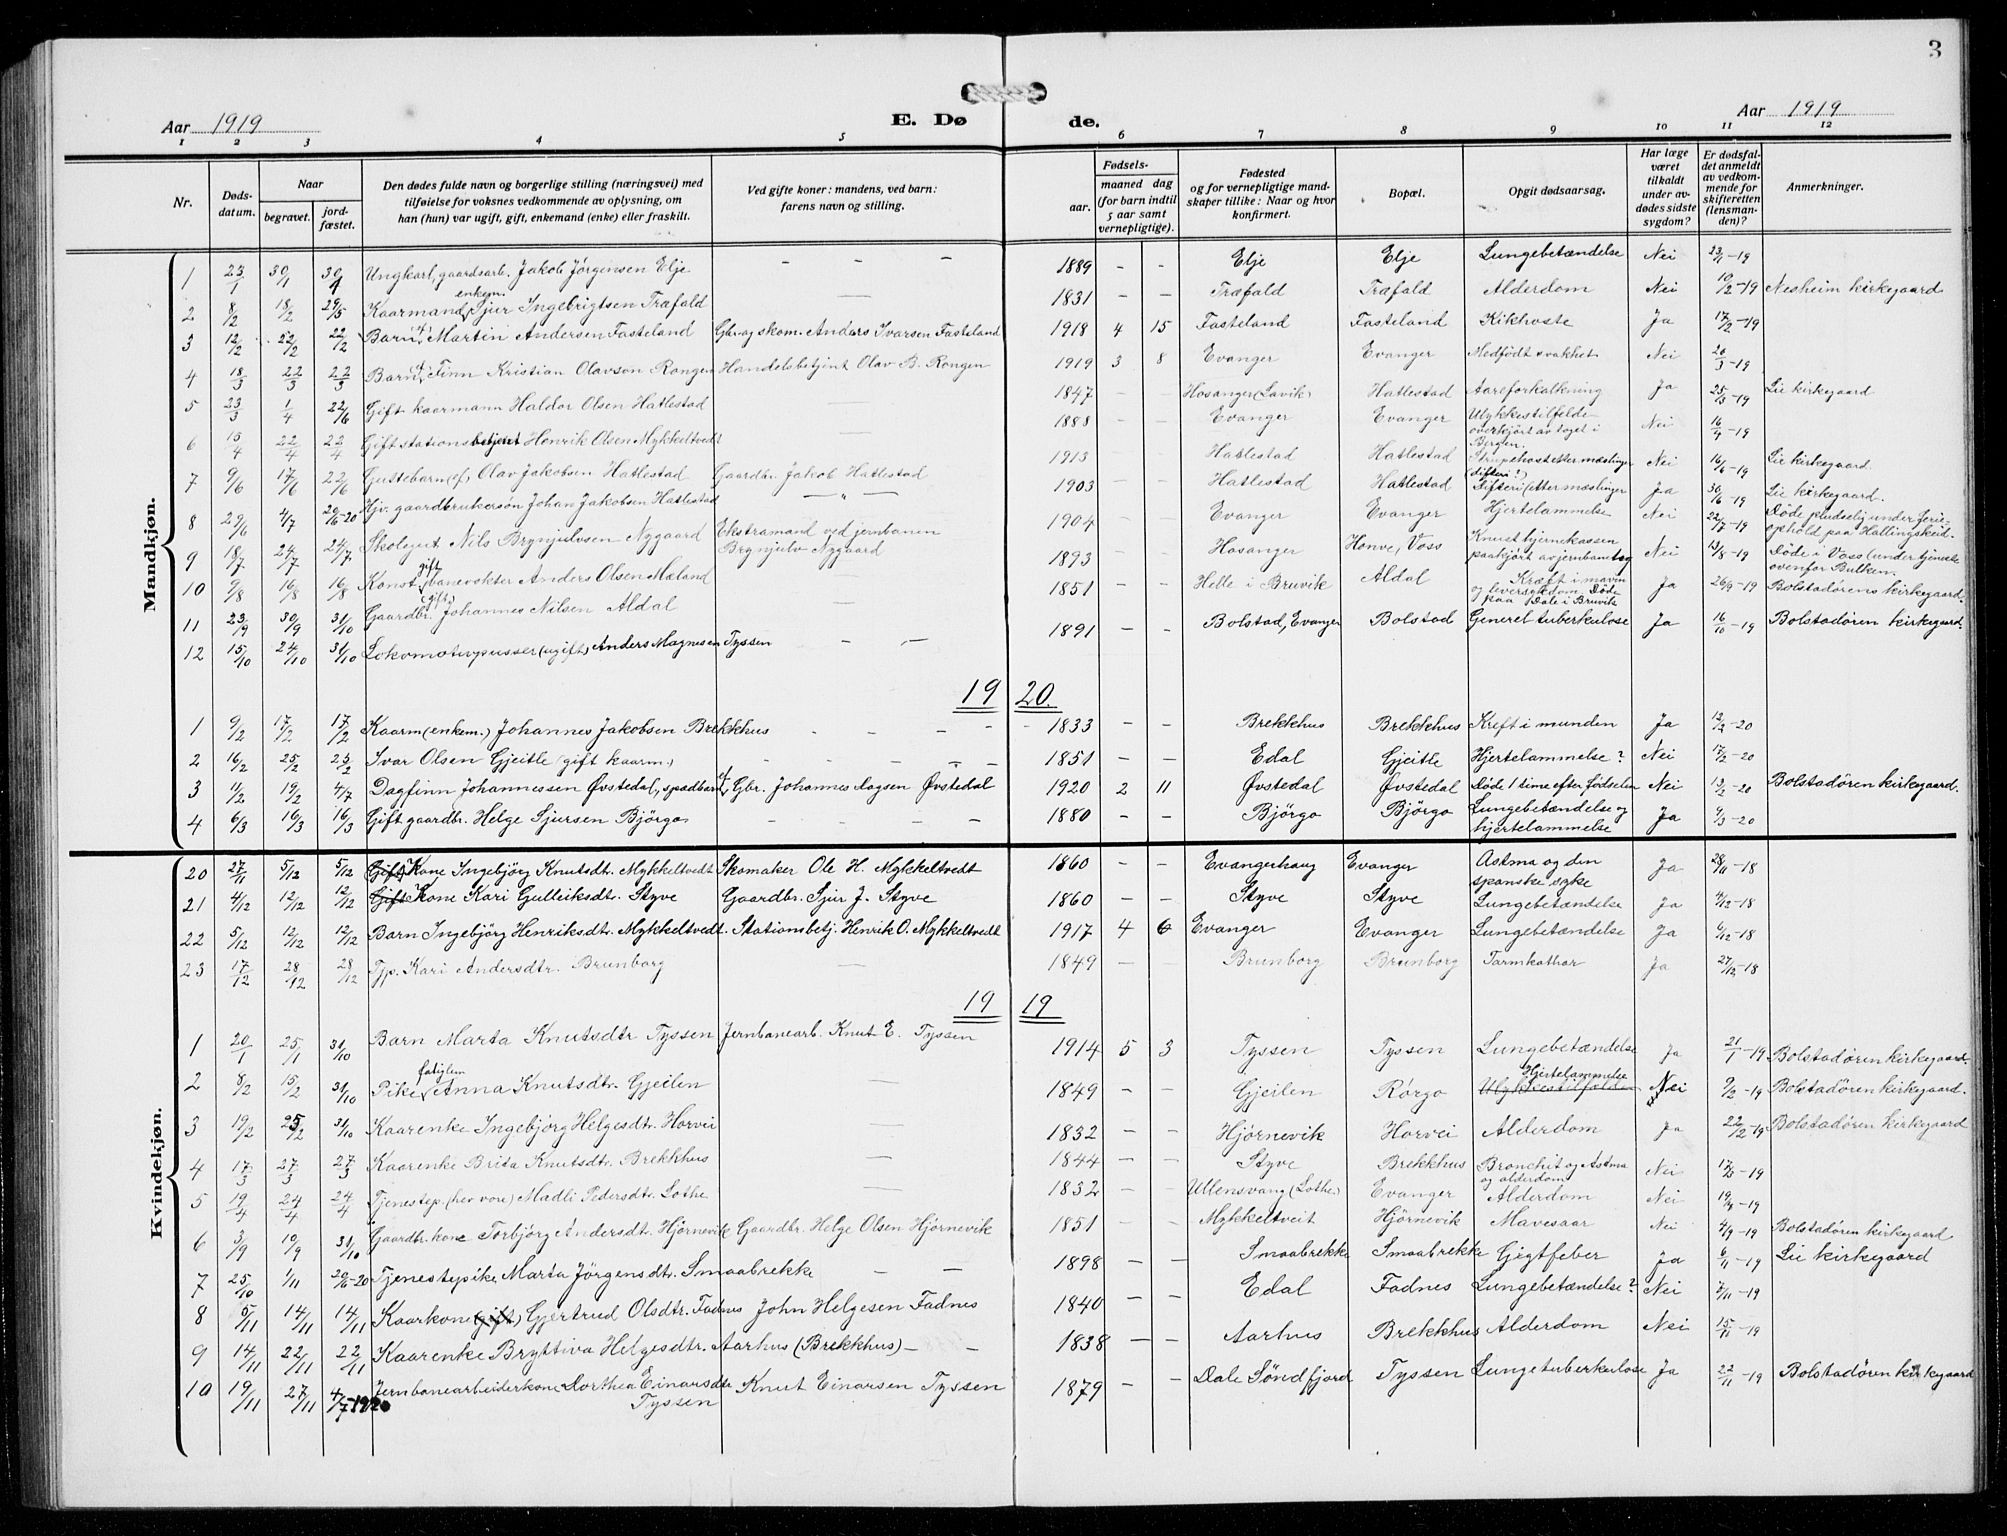 3
Aar 1919
E. Dø
de.
Aar 1919
1 2 3 4 5 6 7 8 9 10 11 12
Nr.
Døds-
datum.
Naar
begravet.
jord-
fæstet.
Den dødes fulde navn og borgerlige stilling (næringsvei) med
tilføielse for voksnes vedkommende av oplysning, om
han (hun) var ugift, gift, enkemand (enke) eller fraskilt.
Ved gifte koner: mandens, ved barn:
farens navn og stilling.
Fødsels-
aar.
maaned dag
(for barn indtil
5 aar samt
vernepligtige).
Fødested
og for vernepligtige mand-
skaper tillike: Naar og hvor
konfirmert.
Bopæl.
Opgit dødsaarsag.
Har læge
været
tilkaldt
under av-
dødes sidste
sygdom?
Er dødsfal-
det anmeldt
av vedkom-
mende for
skifteretten
(lensman-
den)?
Anmerkninger.
Mandkjøn.
1 23/1 30/1 30/1 Ungkarl, gaardsarb. Jakob Jørgensen Elje - - - 1889 - - Elje Elje Lungebetændelse Nei 23/1-19
2 8/2 18/2 29/5 Kaarmand, enkem. Sjur Ingebrigtsen Træfald — 1831 - - Træfald Træfald Alderdom Nei 10/2-19 Nesheim kirkegaard
3 12/2 22/2 22/2 Barn Martin Andersen Fasteland Gbr. og skom. Anders Ivarsen Fasteland 1918 4 15 Fasteland Fasteland Kikhoste Ja 17/2-19
4 18/3 22/3 22/3 Barn Finn Kristian Olavson Rongen Handelsbetjent Olav B. Rongen 1919 3 8 Evanger Evanger Medfødt svakhet Nei 26/3-19
5 23/3 1/4 22/6 Gift kaarmann Haldor Olsen Hatlestad — 1847 - - Hosanger (Lavik) Hatlestad Aareforkalkning Ja 25/3-19 Lie kirkegaard
6 15/4 22/4 22/4 Gift stationsbetjent Henrik Olsen Mykkeltvedt — 1888 - - Evanger Evanger Ulykkestilfelde
overkjørt av toget i
Bergen. Nei 16/4-19
7 9/6 17/6 22/6 Olav Jakobsen Hatlestad Gaardbr. Jakob Hatlestad 1913 - - Hatlestad Hatlestad Strupehoste etter mæslinger
(difteri?) Nei 16/6-19 Lie kirkegaard.
8 29/6 4/7 20/6-20 Hjv. gaardbrukersøn Johan Jakobsen Hatlestad — " — 1903 - - Hatlestad Hatlestad Difteri (etter mæslinger Ja 30/6-19 Lie kirkegaard.
9 18/7 24/7 24/7 Skolegut Nils Brynjulvsen Nygaard Ekstramand ved jernbanen
Brynjulv Nygaard 1904 - - Evanger Evanger Hjertelammelse Nei 22/7-19 Døde pludselig under ferie-
ophold paa Hallingskeid.
10 9/8 16/8 16/8 Konst. gift banevokter Anders Olsen Mæland 1893 - - Hosanger Honve, Voss Knust hjernekassen
paakjørt av jernbanetog Nei 13/8-19 Døde i Voss (under tjeneste
ovenfor Bulken.
11 23/9 30/9 31/10 Gaardbr. (gift) Johannes Nilsen Aldal — 1851 - - Helle i Bruvik Aldal Kræft i maven
og leversykdom. Døde
paa Dale i Bruvik Ja 26/9-19 Bolstadørens kirkegaard.
12 15/10 24/10 31/10 Lokomotivpusser (ugift) Anders Magnesen Tyssen - - 1891 - - Bolstad, Evanger Bolstad Generel tuberkulose Ja 16/10-19 Bolstadøren kirkegaard.
19 20.
1 9/2 17/2 17/2 Kaarm (enkem.) Johannes Jakobsen Brekkhus - - - 1833 - - Brekkhus Brekkhus Kreft i munden Ja 12/2-20
2 16/2 25/2 25/2 Ivar Olsen Gjeitle (gift kaarm.) - - - 1851 - - Edal Gjeitle Hjertelammelse? Nei 17/2-20
3 11/2 19/2 4/7 Dagfinn Johannessen Øvstedal, spædbarn Gbr. Johannes Aagsen Øvstedal 1920 2 11 Øvstedal Øvstedal Døde 1 time efter fødselen Nei 13/2-20 Bolstadøren kirkegaard.
4 6/3 16/3 16/3 Gift gaardbr. Helge Sjursen Bjørgo - - - - 1880 - - Bjørgo Bjørgo Lungebetændelse og
hjertelammelse Ja 9/3-20
Kvindekjøn.
20 27/11 5/12 5/12 Gift Kone Ingebjørg Knutsdtr. Mykkeltvedt Skomaker Ole H. Mykkeltvedt 1860 - - Evangerhaug Evanger Astma og den
spanske syke Ja 28/11-18
21 4/12 12/12 12/12 Gift Kone Kari Gulleiksdtr. Styve Gaardbr. Sjur J. Styve 1860 - - Styve Styve Lungebetændelse Ja 4/12-18
22 5/12 12/12 12/12 Barn Ingebjørg Henriksdtr. Mykkeltvedt. Stationsbetj. Henrik O. Mykkeltvedt 1917 4 6 Evanger Evanger Lungebetændelse Ja 6/12-18
23 17/12 28/12 28/12 Tjp. Kari Andersdtr. Brunborg — 1849 - - Brunborg Brunborg Tarmkathar Ja 27/12-18
19 19
1 20/1 25/1 31/10 Barn Marta Knutsdtr Tyssen Jernbanearb. Knut E. Tyssen 1914 5 3 Tyssen Tyssen Lungebetændelse Ja 21/1-19 Bolstadøren kirkegaard.
2 8/2 15/2 31/10 Pike, fatiglem Anna Knutsdtr. Gjeilen — 1849 - - Gjerlen Rørgo Hjertelammelse
Ulykkestilfelde Nei 9/2-19 Bolstadøren kirkegaard.
3 19/2 25/2 31/10 Kaarenke Ingebjørg Helgesdtr. Horvei — 1832 - - Hjørnevik Horvei Alderdom Ja 22/2-19 Bolstadøren kirkegaard
4 17/3 27/3 27/3 Kaarenke Brita Knutsdtr. Brekkhus — 1844 - - Styve Brekkhus Bronchit og Astma
og alderdom Nei 17/3-19
5 19/4 24/4 24/4 Tjenestep. (her vore) Madli Pedersdtr. Lothe — 1832 - - Ullensvang (Lothe) Evanger Alderdom Nei 19/4-19
6 3/9 10/9 31/10 Gaardbr. kone Torbjørg Andersdtr. Hjørnevik Gaardbr. Helge Olsen Hjørnevik 1851 - - Mykkeltveit Hjørnevik Mavesaar Nei 4/9-19 Bolstadøren kirkegaard
7 25/10 1/11 20/6-20 Tjenestepike Marta Jørgensdtr. Smaabrekke — — 1898 - - Smaabrekke Smaabrekke Gigtfeber Ja 6/11-19 Lie kirkegaard
8 5/11 14/11 14/11 Kaarkone (gift) Gjertrud Olsdtr. Fadnes John Helgesen Fadnes 1840 - - Edal Fadnes Lungebetændelse? Nei 7/11-19
9 14/11 22/11 22/11 Kaarenke Bryttiva Helgesdtr. Aarhus (Brekkhus) - - 1838 - - Aarhus Brekkhus Alderdom Nei 15/11-19
10 19/11 27/11 4/7-1920 Jernbanearbeiderkone Dorthea Einarsdtr Knut Einarsen Tyssen 1879 - - Dale Søndfjord Tyssen Lungetuberkulose Ja 22/11-19 Bolstadøren kirkegaard
Tyssen